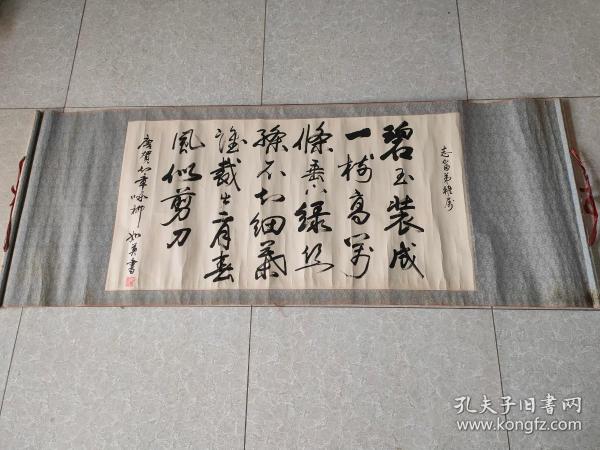 志富弟雅属
碧玉装成
一树高万
條垂下绿丝
絛不知细葉
谁裁出二月春
風似剪刀
唐賀知章咏柳 如英書
孔夫子旧书网
www.kongfz.com